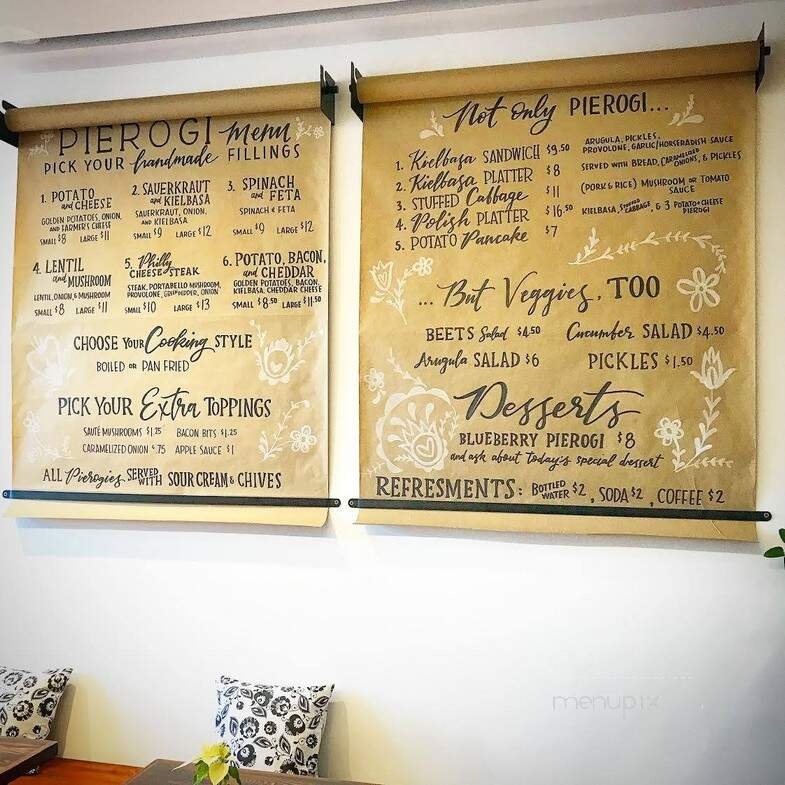 PIEROGI menu
PICK YOUR handmade FILLINGS
1. POTATO and CHEESE
GOLDEN POTATOES, ONION, AND FARMER'S CHEESE
SMALL $8 LARGE $11
2. SAUERKRAUT and KIELBASA
SAUERKRAUT, ONION, AND KIELBASA
SMALL $9 LARGE $12
3. SPINACH and FETA
SPINACH & FETA
SMALL $9 LARGE $12
4. LENTIL and MUSHROOM
LENTIL, ONION, & MUSHROOM
SMALL $8 LARGE $11
5. Philly CHEESE STEAK
STEAK, PORTABELLO MUSHROOM, PROVOLONE, GREEN PEPPER, ONION
SMALL $10 LARGE $13
6. POTATO, BACON, and CHEDDAR
GOLDEN POTATOES, BACON, KIELBASA, CHEDDAR CHEESE
SMALL $8.50 LARGE $11.50
CHOOSE YOUR Cooking STYLE
BOILED OR PAN FRIED
PICK YOUR Extra TOPPINGS
SAUTÉ MUSHROOMS $1.25 BACON BITS $1.25
CARAMELIZED ONION $.75 APPLE SAUCE $1
ALL Pierogies SERVED WITH SOUR CREAM & CHIVES
Not only PIEROGI...
1. Kielbasa SANDWICH $9.50 ARUGULA, PICKLES, PROVOLONE, GARLIC/HORSERADISH SAUCE
2. Kielbasa PLATTER $8 SERVED WITH BREAD, CARAMELIZED ONIONS, & PICKLES
3. STUFFED Cabbage $11 (PORK & RICE) MUSHROOM OR TOMATO SAUCE
4. Polish PLATTER $16.50 KIELBASA, STUFFED CABBAGE, & 3 POTATO & CHEESE PIEROGI
5. POTATO Pancake $7
...But Veggies, TOO
BEETS Salad $4.50 Cucumber SALAD $4.50
Arugula SALAD $6 PICKLES $1.50
Desserts
BLUEBERRY PIEROGI $8
and ask about today's special dessert
REFRESMENTS: BOTTLED WATER $2, SODA $2, COFFEE $2
menupix